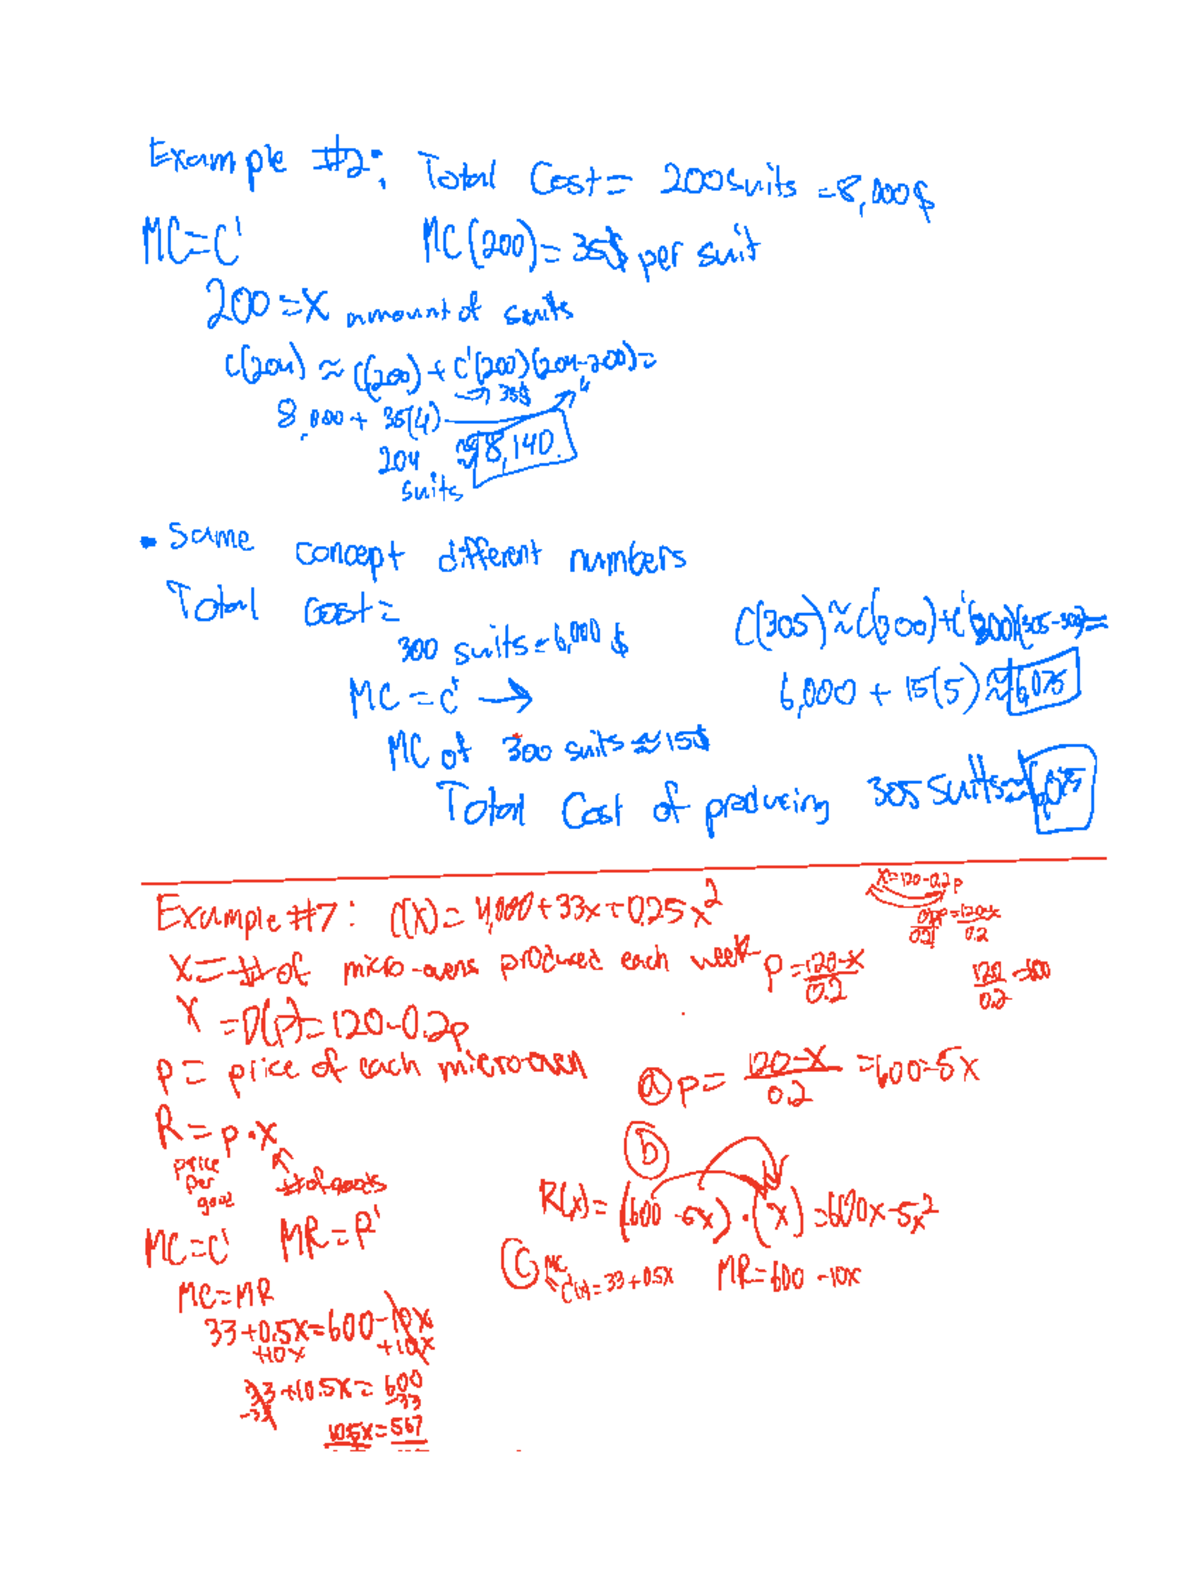 Example #2: Total Cost = 200 suits = 8,000$
MC=C' MC(200) = 35$ per suit
200 = X amount of suits
C(204) ≈ C(200) + C'(200)(204-200)=
→ 35$ 4
8,000 + 35(4)
204 ≈ 8,140.
suits
• Same concept different numbers
Total cost =
300 suits = 6,000 $
MC = C' →
MC of 300 suits ≈ 15$
C(305) ≈ C(300) + C'(300)(305-300)=
6,000 + 15(5) ≈ 6,075
Total Cost of producing 305 suits ≈ 6,075
Example #7: C(x) = 4,000 + 33x + 0.25x²
X = # of micro-ovens produced each week
X = D(p) = 120-0.2p
p = price of each microoven
R = p · x
price per good
# of goods
MC = C' MR = R'
MC = MR
33 + 0.5x = 600 - 10x
+10x +10x
33 + 10.5x = 600
-33 -33
10.5x = 567
X = 120-0.2p
0.2p = 120-x
0.2 0.2
p = 120-x
0.2
120 = 600
0.2
(a) p = 120-x = 600-5x
0.2
(b)
R(x) = (600 - 5x) · (x) = 600x - 5x²
(c) MC
C'(x) = 33 + 0.5x MR = 600 - 10x